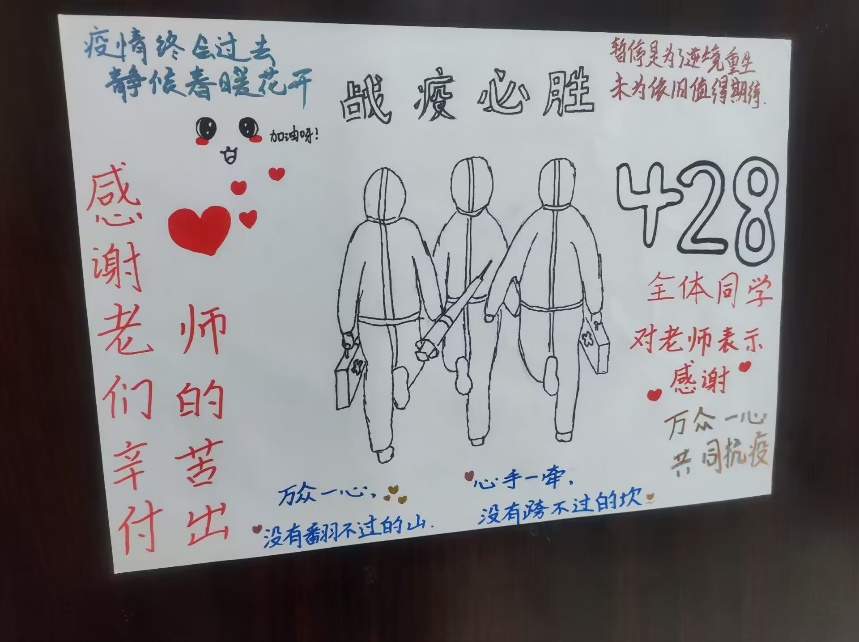 疫情终会过去
静候春暖花开
战疫必胜
暂停是为了逆境重生
未为依旧值得期待.
加油呀!
感谢老师们的辛苦付出
428
全体同学
对老师表示
感谢
万众一心
共同抗疫
万众一心,
没有翻不过的山.
心手一牵,
没有跨不过的坎